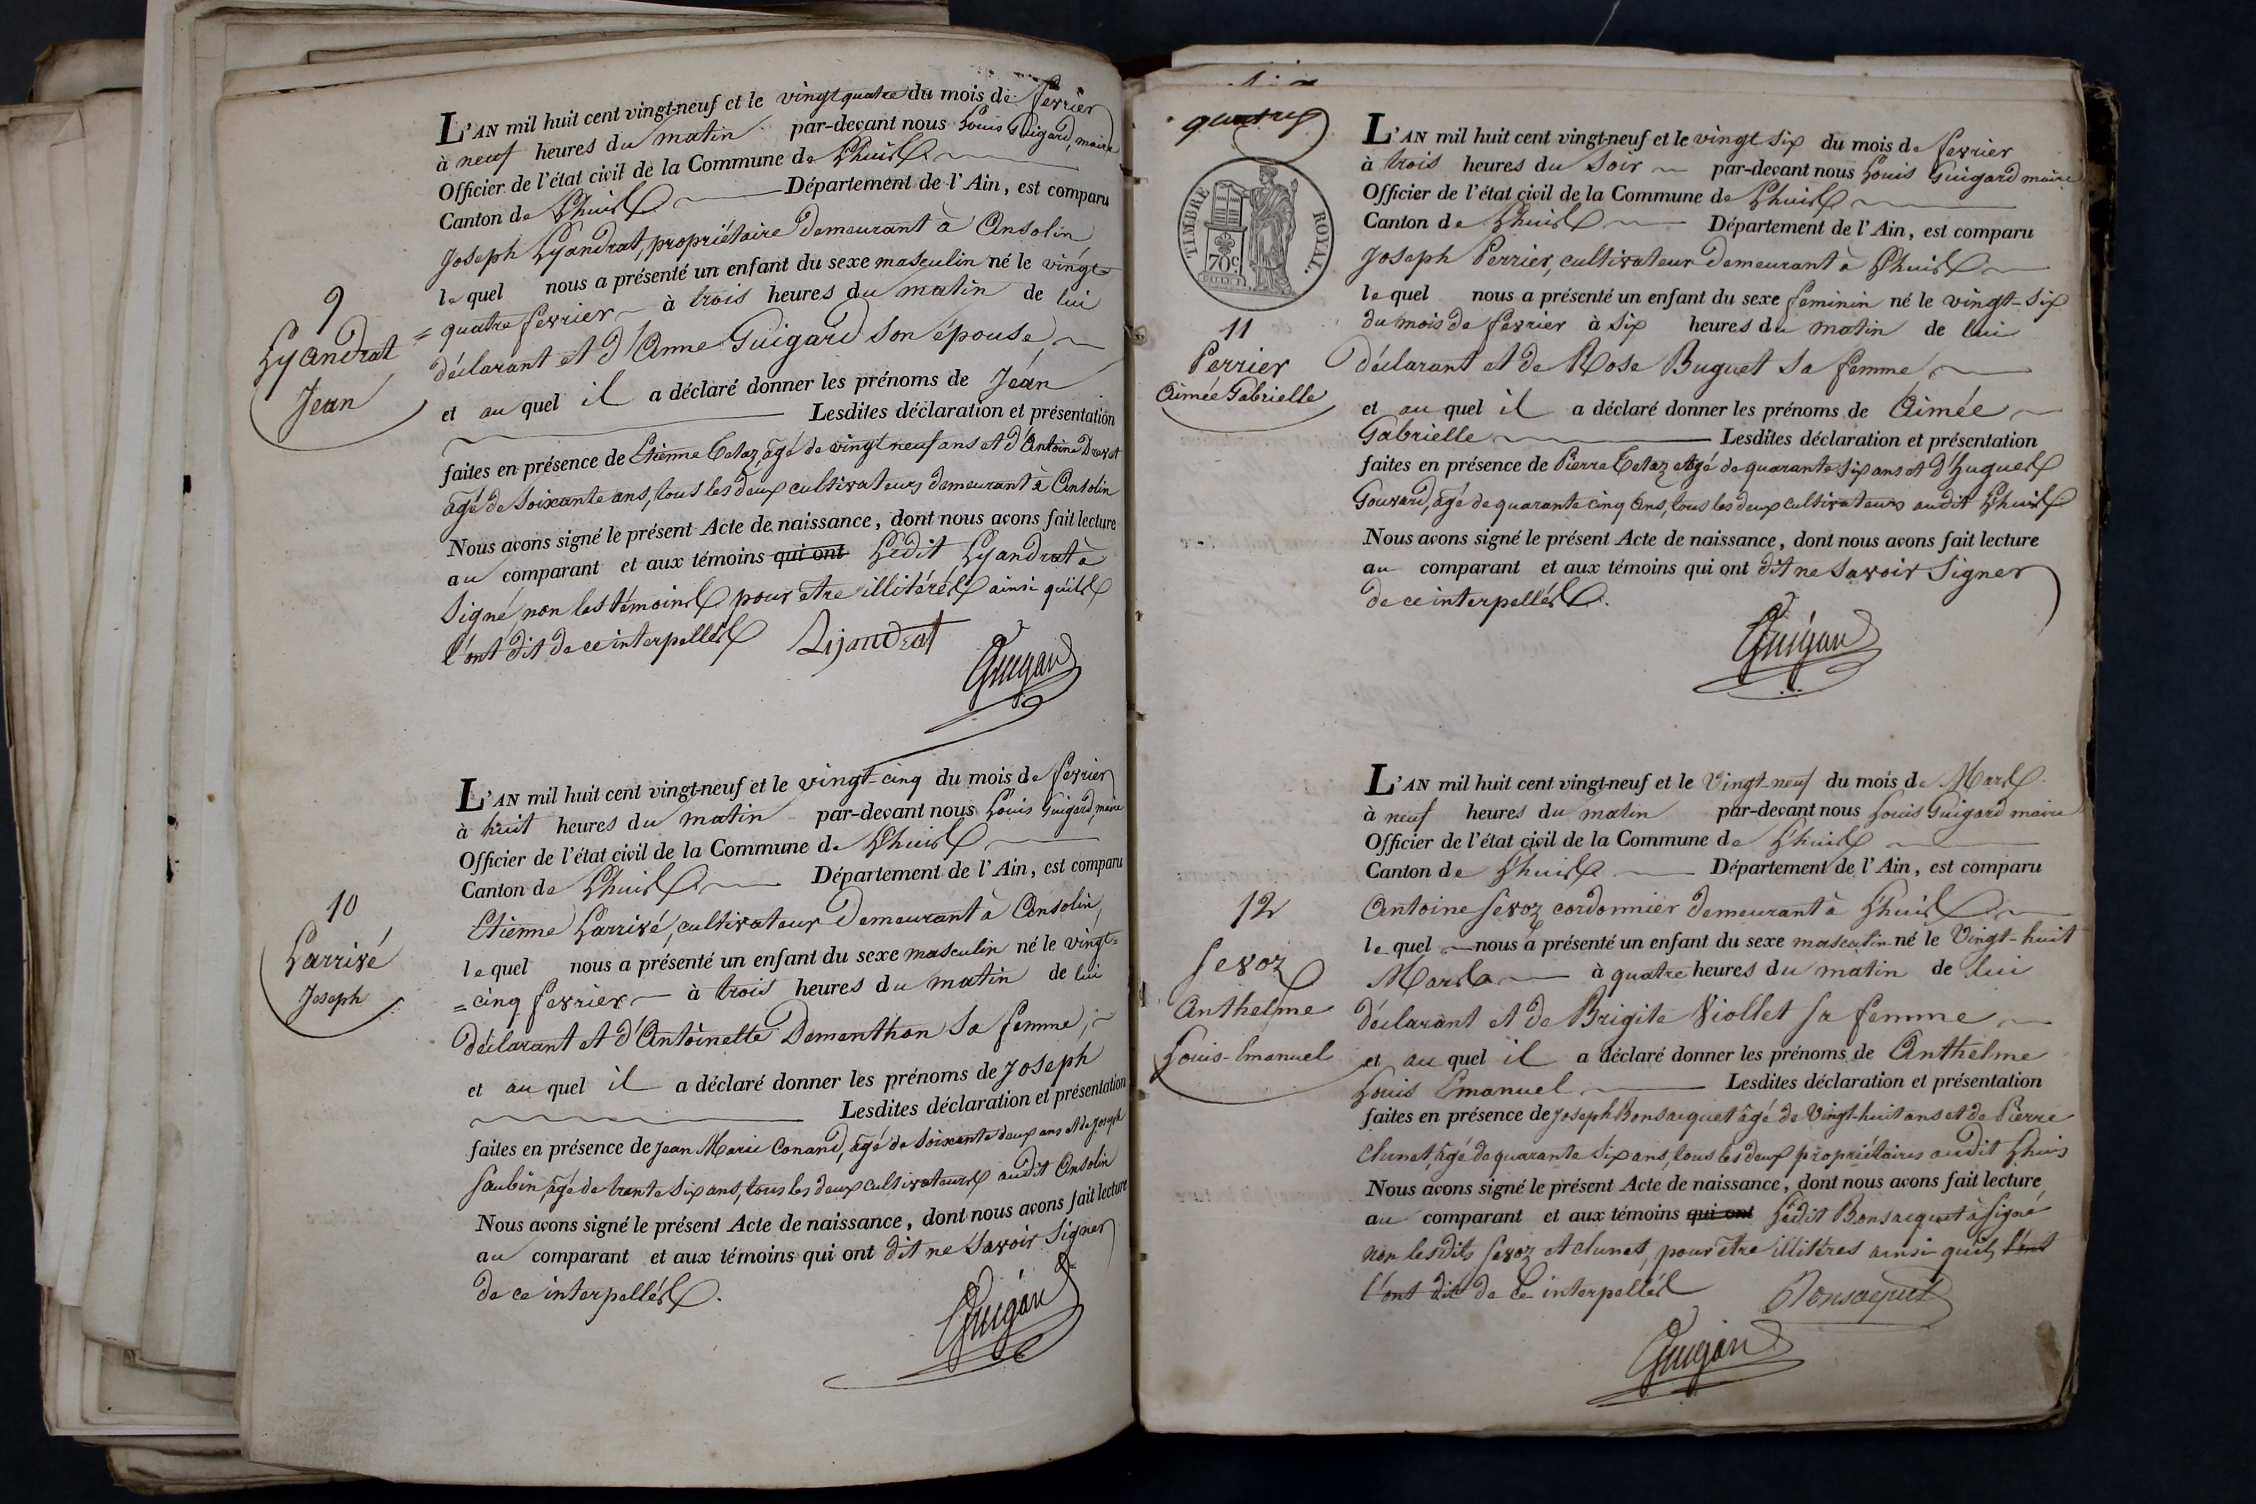 L'AN mil huit cent vingt-neuf et le vingt quatre du mois de fevrier
à neuf heures du matin par-devant nous Louis Guigard, maire
Officier de l'état civil de la Commune de Lhuis
Canton de Lhuis Département de l'Ain, est comparu
Joseph Lyandrat, propriétaire demeurant à Ansolin,
lequel nous a présenté un enfant du sexe masculin né le vingt=
=quatre fevrier à trois heures du matin de lui
9
Lyandrat
Jean
déclarant et d'Anne Guigard son épouse,
et au quel il a déclaré donner les prénoms de Jean
Lesdites déclaration et présentation
faites en présence de Etienne Cetaz, âgé de vingt neuf ans et d'Antoine Drevet
âgé de soixante ans, tous les deux cultivateurs demeurant à Ansolin
Nous avons signé le présent Acte de naissance, dont nous avons fait lecture
au comparant et aux témoins qui ont Lédit Lyandrat à
signé, non les témoins pour etre illitérés ainsi qu'ils
l'ont dit de ce interpellés Lijandrat
Guigard
L'AN mil huit cent vingt-neuf et le vingt-cinq du mois de fevrier
à huit heures du matin par-devant nous Louis Guigard, maire
Officier de l'état civil de la Commune de Lhuis
Canton de Lhuis Département de l'Ain, est comparu
Etienne Larrivé, cultivateur demeurant à Ansolin,
lequel nous a présenté un enfant du sexe masculin né le vingt=
=cinq fevrier à trois heures du matin de lui
10
Larrivé
Joseph
déclarant et d'Antoinette Dementhon sa femme,
et au quel il a déclaré donner les prénoms de Joseph
Lesdites déclaration et présentation
faites en présence de Jean Marie Conand, âgé de soixante deux ans et de Joseph
Saubin, âgé de trente six ans, tous les deux cultivateurs audit Ansolin
Nous avons signé le présent Acte de naissance, dont nous avons fait lecture
au comparant et aux témoins qui ont dit ne savoir signer
de ce interpellés.
Guigard
quatre
TIMBRE ROYAL.
70c
L'AN mil huit cent vingt-neuf et le vingt six du mois de fevrier
à trois heures du soir par-devant nous Louis Guigard maire
Officier de l'état civil de la Commune de Lhuis
Canton de Lhuis Département de l'Ain, est comparu
Joseph Perrier, cultivateur demeurant à Lhuis
lequel nous a présenté un enfant du sexe feminin né le vingt-six
du mois de fevrier à six heures du matin de lui
11
Perrier
Aimée Gabrielle
déclarant et de Rose Buguet sa femme,
et au quel il a déclaré donner les prénoms de Aimée
Gabrielle Lesdites déclaration et présentation
faites en présence de Pierre Cetaz âgé de quarante six ans et d'Hugues
Gouvard, âgé de quarante cinq ans, tous les deux cultivateurs audit Lhuis
Nous avons signé le présent Acte de naissance, dont nous avons fait lecture
au comparant et aux témoins qui ont dit ne savoir signer
de ce interpellés.
Guigard
L'AN mil huit cent vingt-neuf et le Vingt-neuf du mois de Mars
à neuf heures du matin par-devant nous Louis Guigard maire
Officier de l'état civil de la Commune de Lhuis
Canton de Lhuis Département de l'Ain, est comparu
Antoine Sevoz cordonnier demeurant à Lhuis
lequel nous a présenté un enfant du sexe masculin né le Vingt-huit
Mars à quatre heures du matin de lui
12
Sevoz
Anthelme
Louis-Emanuel
déclarant et de Brigite Viollet sa femme
et au quel il a déclaré donner les prénoms de Anthelme
Louis Emanuel Lesdites déclaration et présentation
faites en présence de Joseph Bonsacquet âgé de Vingt-huit ans et de Pierre
Clunet, âgé de quarante six ans, tous les deux propriétaires audit Lhuis
Nous avons signé le présent Acte de naissance, dont nous avons fait lecture
au comparant et aux témoins qui ont Lédit Bonsacquet à signé
non lesdits Sevoz et Clunet, pour être illitéres ainsi qu'ils l'ont
l'ont dit de ce interpellés Bonsacquet
Guigard